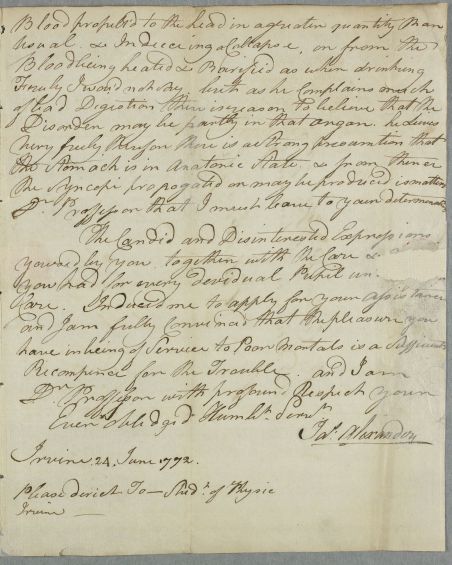 Blood propell'd to the head in a greater quantity than
usual. & Indeceing a Collapse, or from the
Blood being heated & Rarified as when drinking
Freely I woud not say but as he Complains much
of bad Digestion there is reason to believe that the
Disorder may be partly in that organ. he lives
very freely therefor there is a strong presumtion that
the Stomach is in an atonic State, & from thence
the Syncope propogated or may be produced
Dr Professor that I must leave to your determination
The Candid and Disinterested Expressions
yowsed by you together with the Care &
you had for every Devidual Pupil un.
Care. Induced me to apply for your assistance
and I am fully Convinced that the pleasure you
have in being of Service to Poor mortals is a Sufficient
Recompence for the Trouble. and I am
Dr. Professor with profound Respect your
Ever oblidged Humble. Servt.
Jas. Alexander
Irvine 24. June 1792.
Please derict To — Stud.t of Physic
Irvine —